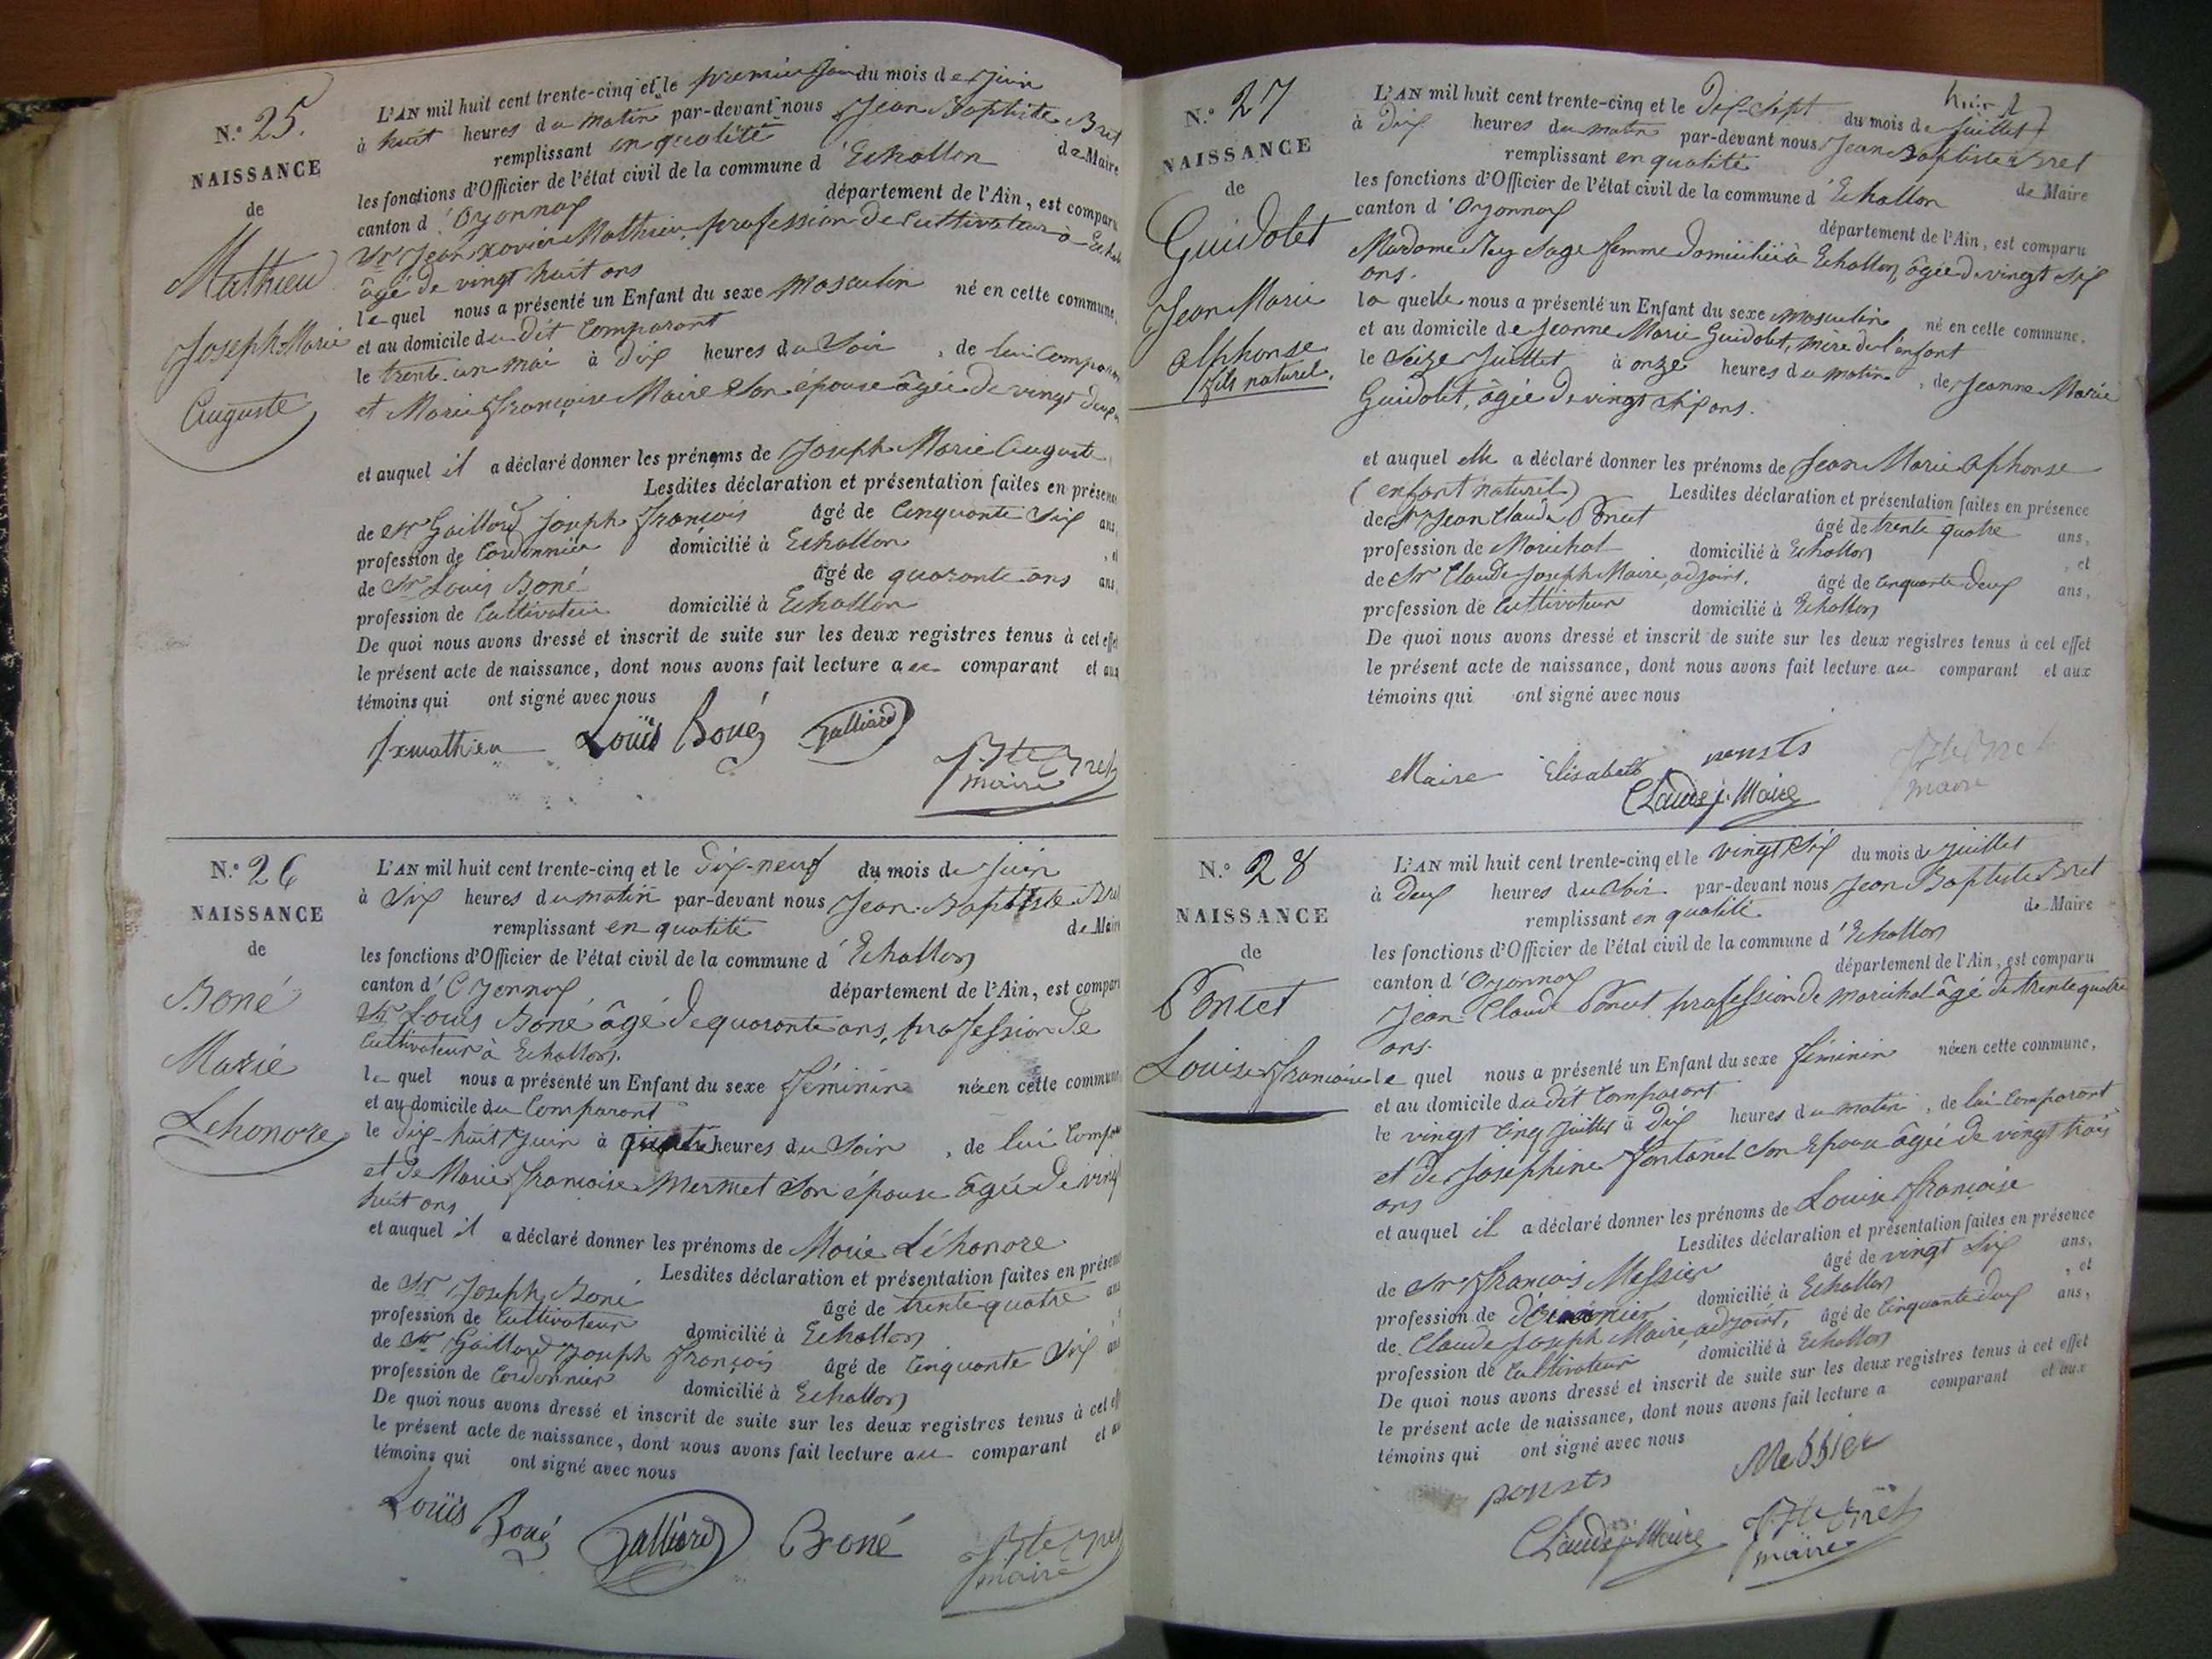 N.° 25.
NAISSANCE
de
Mathieu
Joseph Marie
Auguste
L'AN mil huit cent trente-cinq et le premier Jour du mois de Juin
à huit heures du matin par-devant nous Jean Baptiste Bret
remplissant en qualité de Maire
les fonctions d'Officier de l'état civil de la commune d'Echallon
canton d'Oyonnax département de l'Ain, est comparu
Sr Jean Xavier Mathieu, profession de Cultivateur à
âgé de vingt huit ans
lequel nous a présenté un Enfant du sexe masculin né en cette commune,
et au domicile du dit Comparant
le trente un mai à dix heures du Soir, de lui
et Marie Françoise Maire Son épouse âgée de vingt deux
et auquel il a déclaré donner les prénoms de Joseph Marie Auguste
Lesdites déclaration et présentation faites en
de Sr Gaillard Joseph François âgé de Cinquante Six ans,
profession de Cordonnier domicilié à Echallon, et
de Sr Louis Boné âgé de quarante ans ans,
profession de Cultivateur domicilié à Echallon
De quoi nous avons dressé et inscrit de suite sur les deux registres tenus à cet effet
le présent acte de naissance, dont nous avons fait lecture au comparant et aux
témoins qui ont signé avec nous
jxmathieu Louïs Boné Galliard
J Bte Bret
maire
N.° 26
NAISSANCE
de
Boné
Marie
Lehonore
L'AN mil huit cent trente-cinq et le Dix-neuf du mois de Juin
à Six heures du matin par-devant nous Jean-Baptiste
remplissant en qualité de Maire
les fonctions d'Officier de l'état civil de la commune d'Echallon
canton d'Oyonnax département de l'Ain, est
Sr Louis Boné âgé de quarante ans, profession de
Cultivateur à Echallon.
lequel nous a présenté un Enfant du sexe féminin née en cette
et au domicile du Comparant
le dix-huit Juin à heures du Soir, de lui
et de Marie Françoise Mermet Son épouse âgée de
huit ans
et auquel il a déclaré donner les prénoms de Marie Léhonore
Lesdites déclaration et présentation faites en
de Sr Joseph Boné âgé de trente quatre
profession de Cultivateur domicilié à Echallon
de Sr Gaillard Joseph François âgé de Cinquante Six
profession de Cordonnier domicilié à Echallon
De quoi nous avons dressé et inscrit de suite sur les deux registres tenus à cet
le présent acte de naissance, dont nous avons fait lecture au comparant et
témoins qui ont signé avec nous
Louïs Boné Galliard Boné
J Bte Bret
maire
N.° 27
NAISSANCE
de
Guidolet
Jean Marie
alphonse
fils naturel.
L'AN mil huit cent trente-cinq et le Dix-Sept du mois de Juillet
à Dix heures du matin par-devant nous Jean Baptiste Bret
remplissant en qualité de Maire
les fonctions d'Officier de l'état civil de la commune d'Echallon
canton d'Oyonnax département de l'Ain, est comparu
Madame Rey Sage femme domiciliée à Echallon, âgée de vingt Six
ans.
la quelle nous a présenté un Enfant du sexe masculin né en cette commune,
et au domicile de Jeanne Marie Guidolet, mère de l'enfant
le Seize Juillet à onze heures du matin, de Jeanne Marie
Guidolet, âgée de vingt Six ans.
et auquel elle a déclaré donner les prénoms de Jean Marie alphonse
(enfant naturel) Lesdites déclaration et présentation faites en présence
de Sr Jean Claude Poncet âgé de trente quatre ans,
profession de Maréchal domicilié à Echallon, et
de Sr Claude Joseph Maire, adjoint, âgé de Cinquante Deux ans,
profession de Cultivateur domicilié à Echallon
De quoi nous avons dressé et inscrit de suite sur les deux registres tenus à cet effet
le présent acte de naissance, dont nous avons fait lecture au comparant et aux
témoins qui ont signé avec nous
Maire Elisabeth ponsts J Bte Bret
Claude j. Maire maire
N.° 28
NAISSANCE
de
Poncet
Louise Françoise
L'AN mil huit cent trente-cinq et le vingt Six du mois de Juillet
à Deux heures du Soir par-devant nous Jean Baptiste Bret
remplissant en qualité de Maire
les fonctions d'Officier de l'état civil de la commune d'Echallon
canton d'Oyonnax département de l'Ain, est comparu
Jean Claude Poncet profession de Maréchal âgé de trente quatre
ans.
le quel nous a présenté un Enfant du sexe féminin née en cette commune,
et au domicile du dit Comparant
le vingt Cinq Juillet à Dix heures du matin, de lui Comparant
et de Josephine Fontanel Son Epouse âgée de vingt trois
ans
et auquel il a déclaré donner les prénoms de Louise Françoise
Lesdites déclaration et présentation faites en présence
de Sr François Messier âgé de vingt Six ans,
profession de domicilié à Echallon, et
de Claude Joseph Maire, adjoint, âgé de Cinquante deux ans,
profession de Cultivateur domicilié à Echallon
De quoi nous avons dressé et inscrit de suite sur les deux registres tenus à cet effet
le présent acte de naissance, dont nous avons fait lecture a comparant et aux
témoins qui ont signé avec nous
ponsts Messier
Claude j Maire J Bte Bret
maire